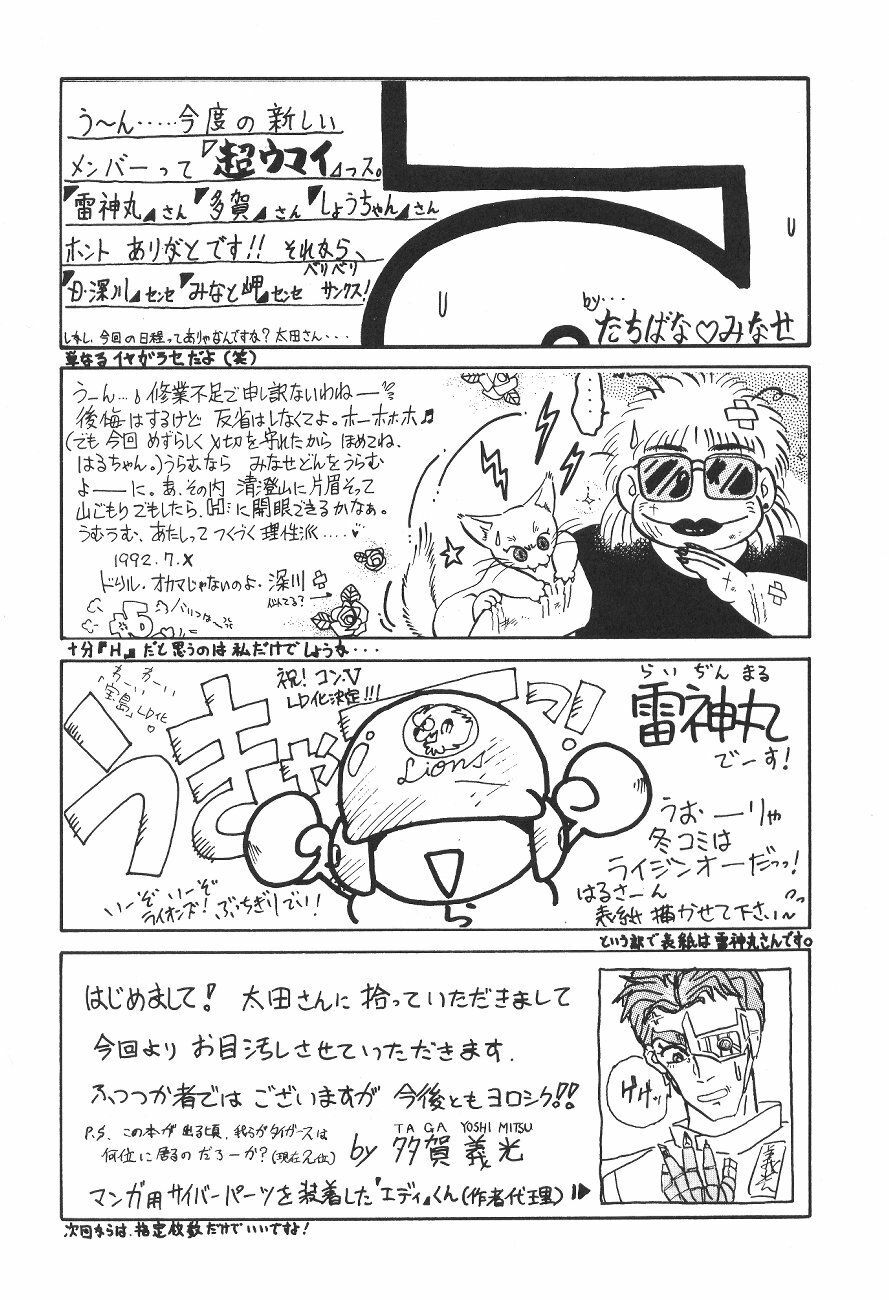 う〜ん‥‥‥今度の新しい
メンバーって『超ウマイ』っス。
『雷神丸』さん『多賀』さん『しょうちゃん』さん
ホント ありがとです!! それなら、
『日・深川』センセ『みなと岬』センセ ベリベリ サンクス!
しかし、今回の日程ってありゃなんですね? 太田さん・・・
by・・・
たちばな♡みなせ
単なるイヤがラセだよ(笑)
うーん…♪修業不足で申し訳ないわねー
後悔はするけど 反省はしなくてよ。ホーホホホ♫
(でも今回 めずらしく〆切を守れたから ほめてね、
はるちゃん。)うらむなら みなせどんをうらむ
よーーに。あ、その内 清澄山に片眉そって
山ごもりでもしたら、Hに開眼できるかなぁ。
うむうむ、あたしってつくづく理性派‥‥♥
1992.7.X
ドリル・オカマじゃないのよ・深川
似てる?
十分『H』だと思うのは私だけでしょうか・・・
ちーい ちーい
「宝島」LD化
♡
祝! コン・V
LD化決定!!!
うきゃーっ!
Lions
いーぞ いーぞ
ライオンズ! ぶっちぎりでい!
ら
らい ぢん まる
雷神丸
でーす!
うおーーりゃ
冬コミは
ライジンオーだっっ!
はるさーん
表紙 描かせて下さい〜
という訳で表紙は雷神丸さんです。
はじめまして! 太田さんに 拾っていただきまして
今回より お目汚しさせていっただきます.
ふつつか者では ございますが 今後とも ヨロシク!!
P.S. この本が出る頃、我らがタイガースは
何位に居るのだろーか?(現在2位)
by
TA GA YOSHI MITSU
多賀 義光
マンガ用サイバーパーツを装着した『エディ』くん(作者代理)
ゲゲッ
義光
次回からは、指定枚数だけでいいですよ!